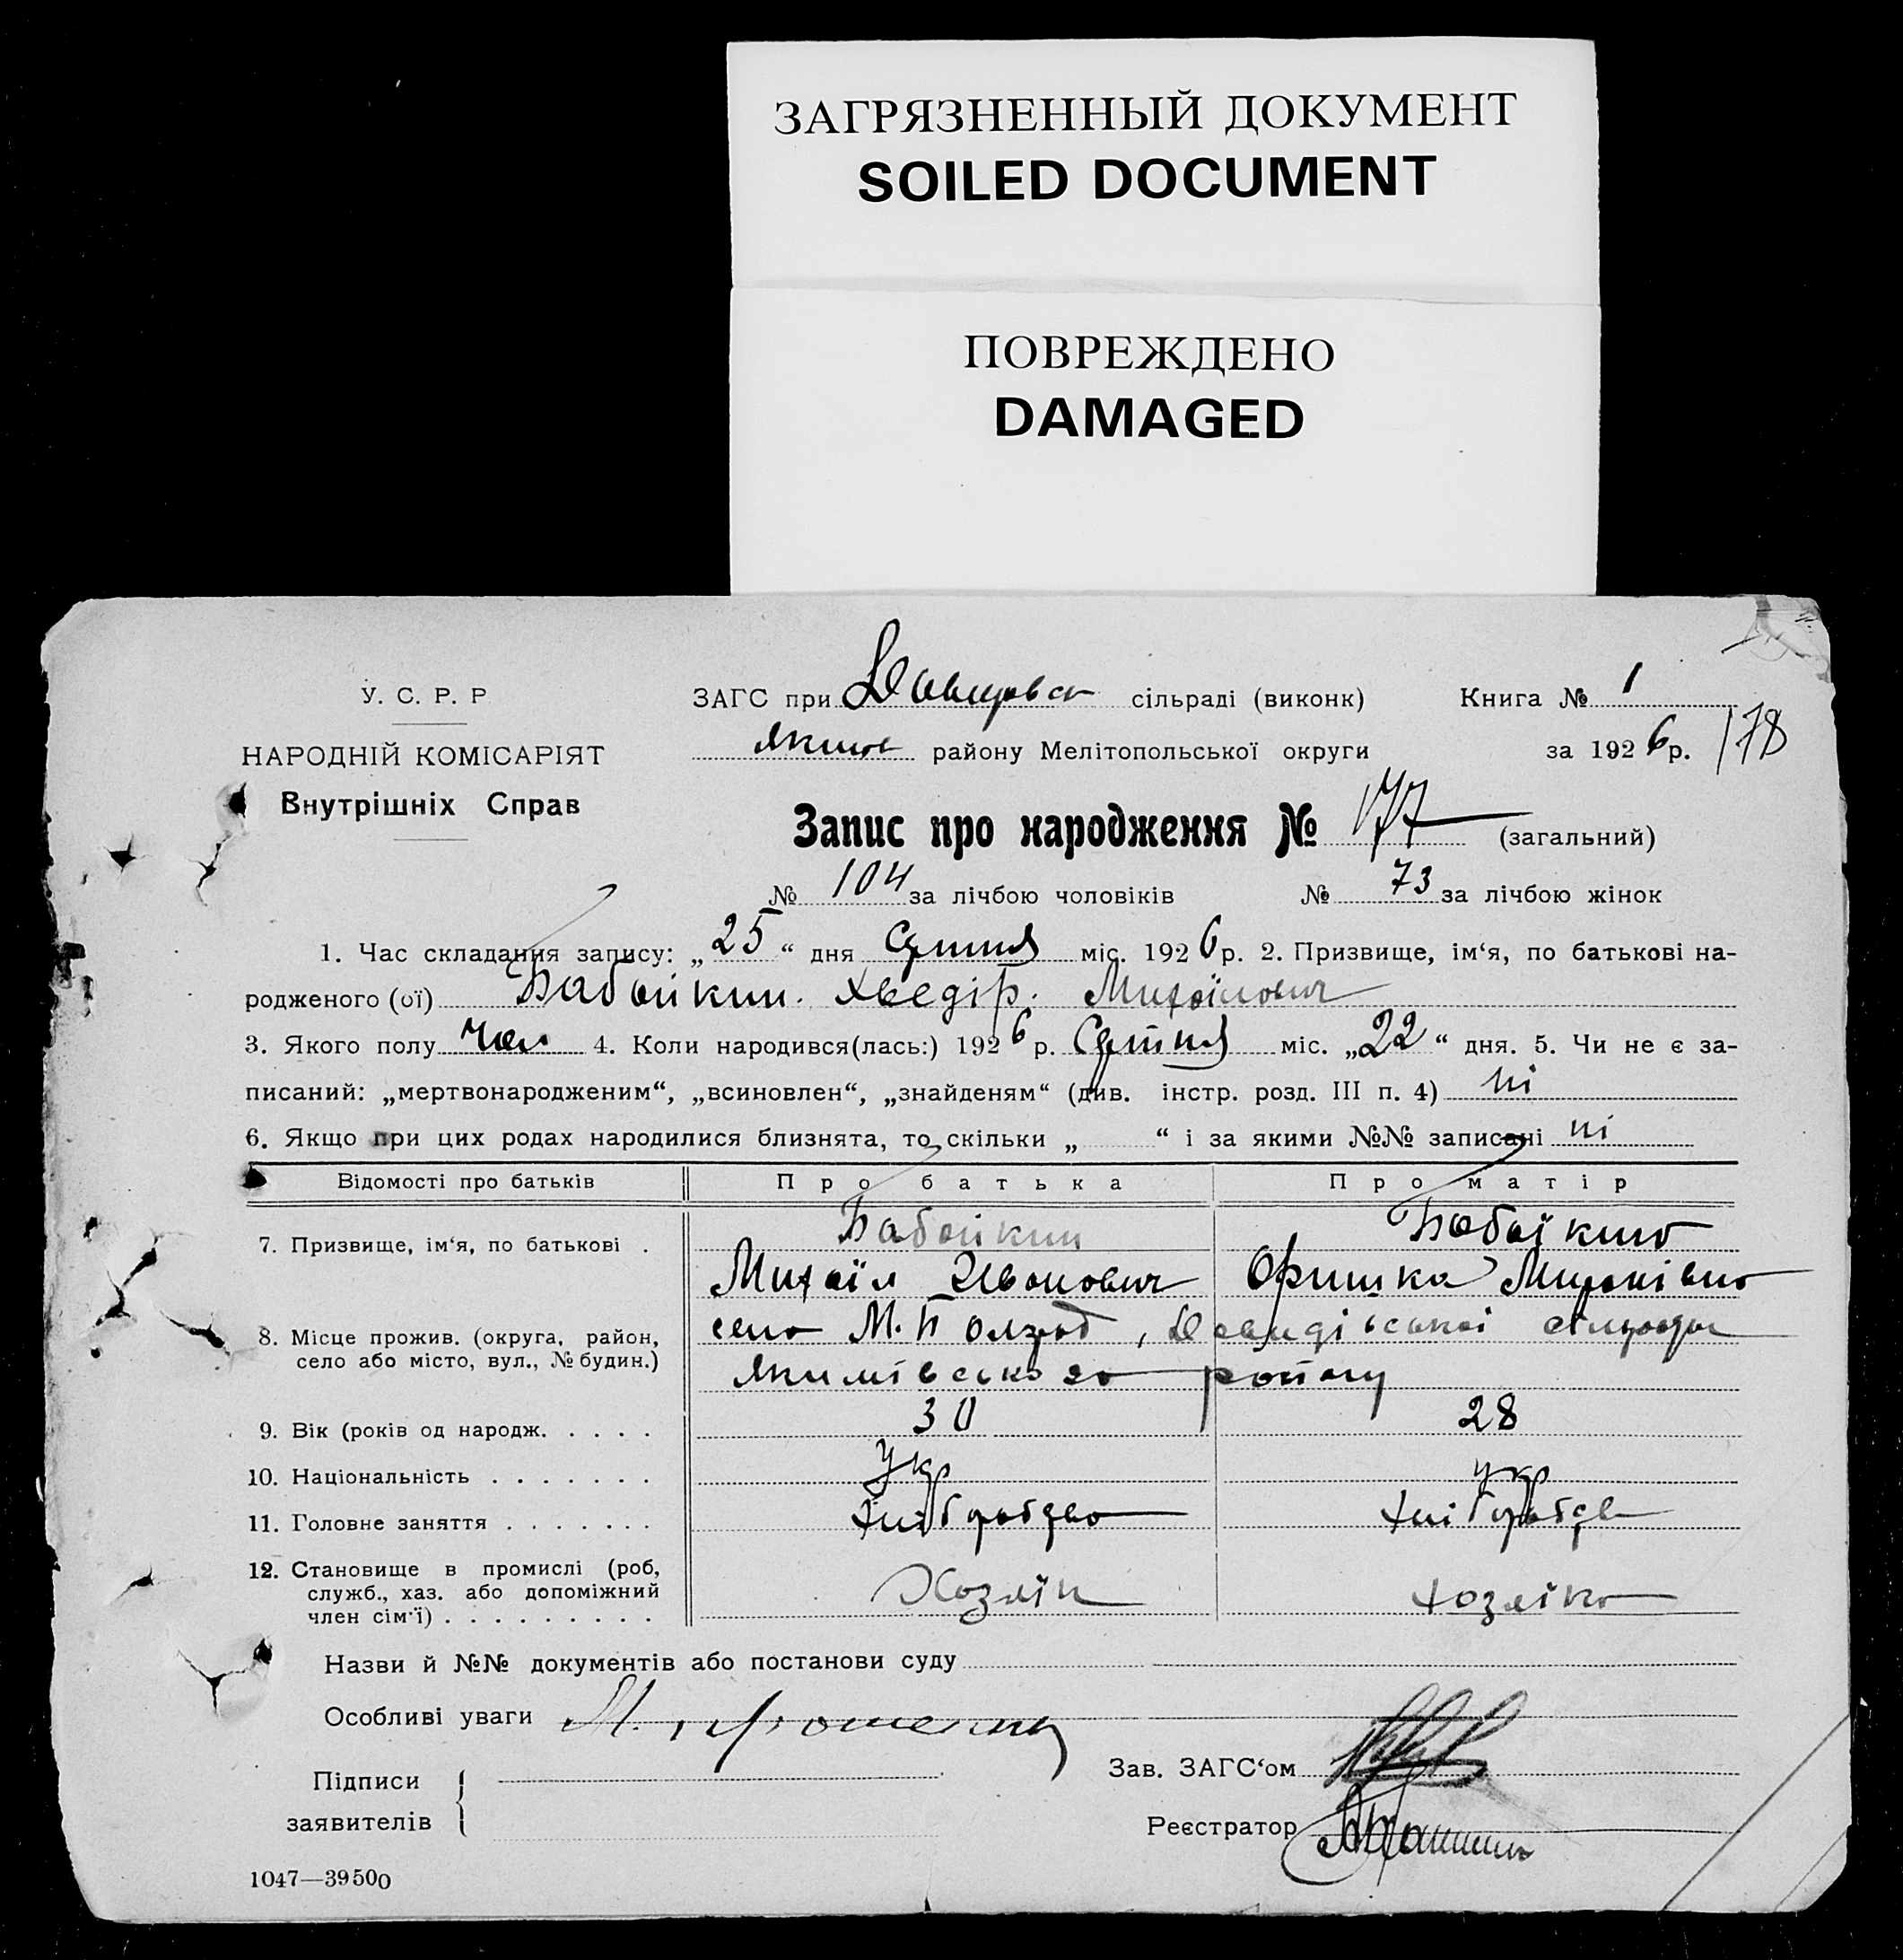 ЗАГРЯЗНЕННЫЙ ДОКУМЕНТ
SOILED DOCUMENT
ПОВРЕЖДЕНО
DAMAGED
У. С. Р. Р
НАРОДНІЙ КОМІСАРІЯТ
Внутрішніх Справ
ЗАГС при сільраді (виконк)
Книга № 1
Яким району Мелітопольської округи
за 1926 р. 178
Запис про народження № 177 (загальний)
№ 104 за лічбою чоловіків № 73 за лічбою жінок
1. Час складання запису: „25“ дня Серпня міс. 1926 р. 2. Призвище, ім‘я, по батькові на-
родженого (ої) Бабайкин. Хведір. Михаїлович
3. Якого полу Чол 4. Коли народився(лась:) 1926 р. Серпня міс. „22“ дня. 5. Чи не є за-
писаний: „мертвонародженим“, „всиновлен“, „знайденям“ (див. інстр. розд. III п. 4) ні
6. Якщо при цих родах народилися близнята, то скільки „ “ і за якими №№ записані ні
Відомості про батьків Про батька Про матір
7. Призвище, ім‘я, по батькові . Бабайкин Бабаїкина
Михаїл Іванович Оришка Миронівна
8. Місце прожив. (округа, район,
село або місто, вул., № будин.)
село М. , Давидівської сільради
Якимівського району
9. Вік (років од народж. . . . . 30 28
10. Національність . . . . . . . Укр укр
11. Головне заняття . . . . . . . Хліборобство хлібороб
12. Становище в промислі (роб,
служб., хаз. або допоміжний
член сім‘ї) . . . . . . . . . Хозяїн хозяїка
Назви й №№ документів або постанови суду
Особливі уваги
Підписи
заявителів
Зав. ЗАГС‘ом
Реєстратор
1047—39500